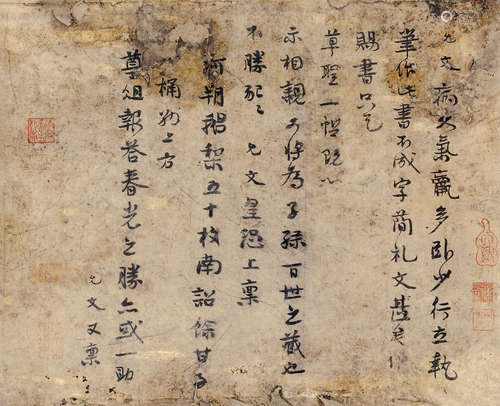 允文病久氣羸多臥少行立執
筆作此書不成字簡札文甚
賜書只乞
草聖一幅
示相親
將為子孫百世之藏也
不勝
允文皇恐上稟
河朔鵝梨五十枚南詔餘甘子
一桶勒上方
尊俎報答春光之勝亦或一助
允文又稟